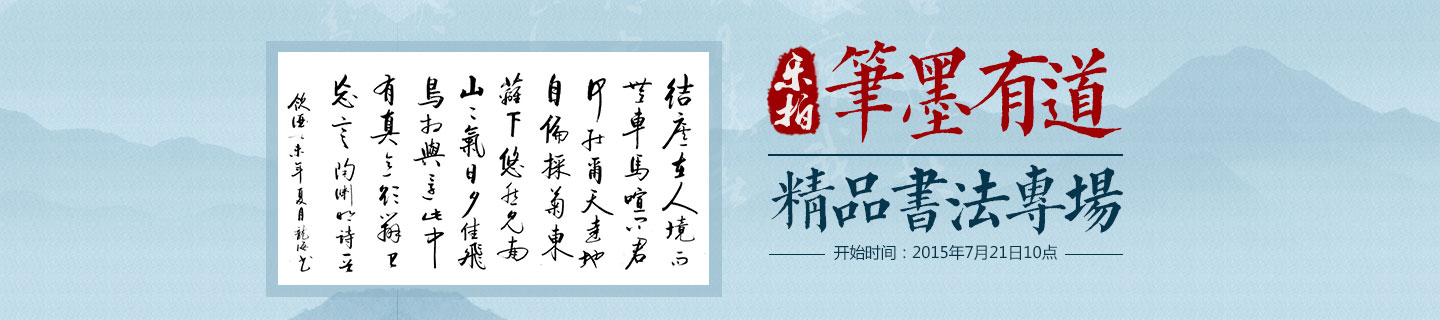 結廬在人境而
無車馬喧问君
何能爾心遠地
自偏採菊東
籬下悠然見南
山〻氣日夕佳飛
鳥相與還此中
有真意欲辨已
忘言陶渊明诗
飲酒乙未年夏月龍海书
乐拍
筆墨有道
精品書法專場
开始时间：2015年7月21日10点